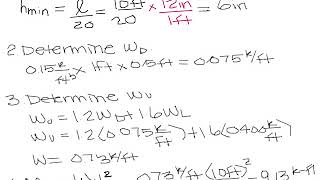 hmin = l/20 = 10ft/20 × 12in/1ft = 6in
2. Determine WD
0.15 k/ft³ × 1ft × 0.5ft = 0.075 k/ft
3. Determine WU
Wu = 1.2WD + 1.6WL
Wu = 1.2(0.075 k/ft) + 1.6(0.400 k/ft)
W = 0.73 k/ft
0.73 k/ft (10ft)²